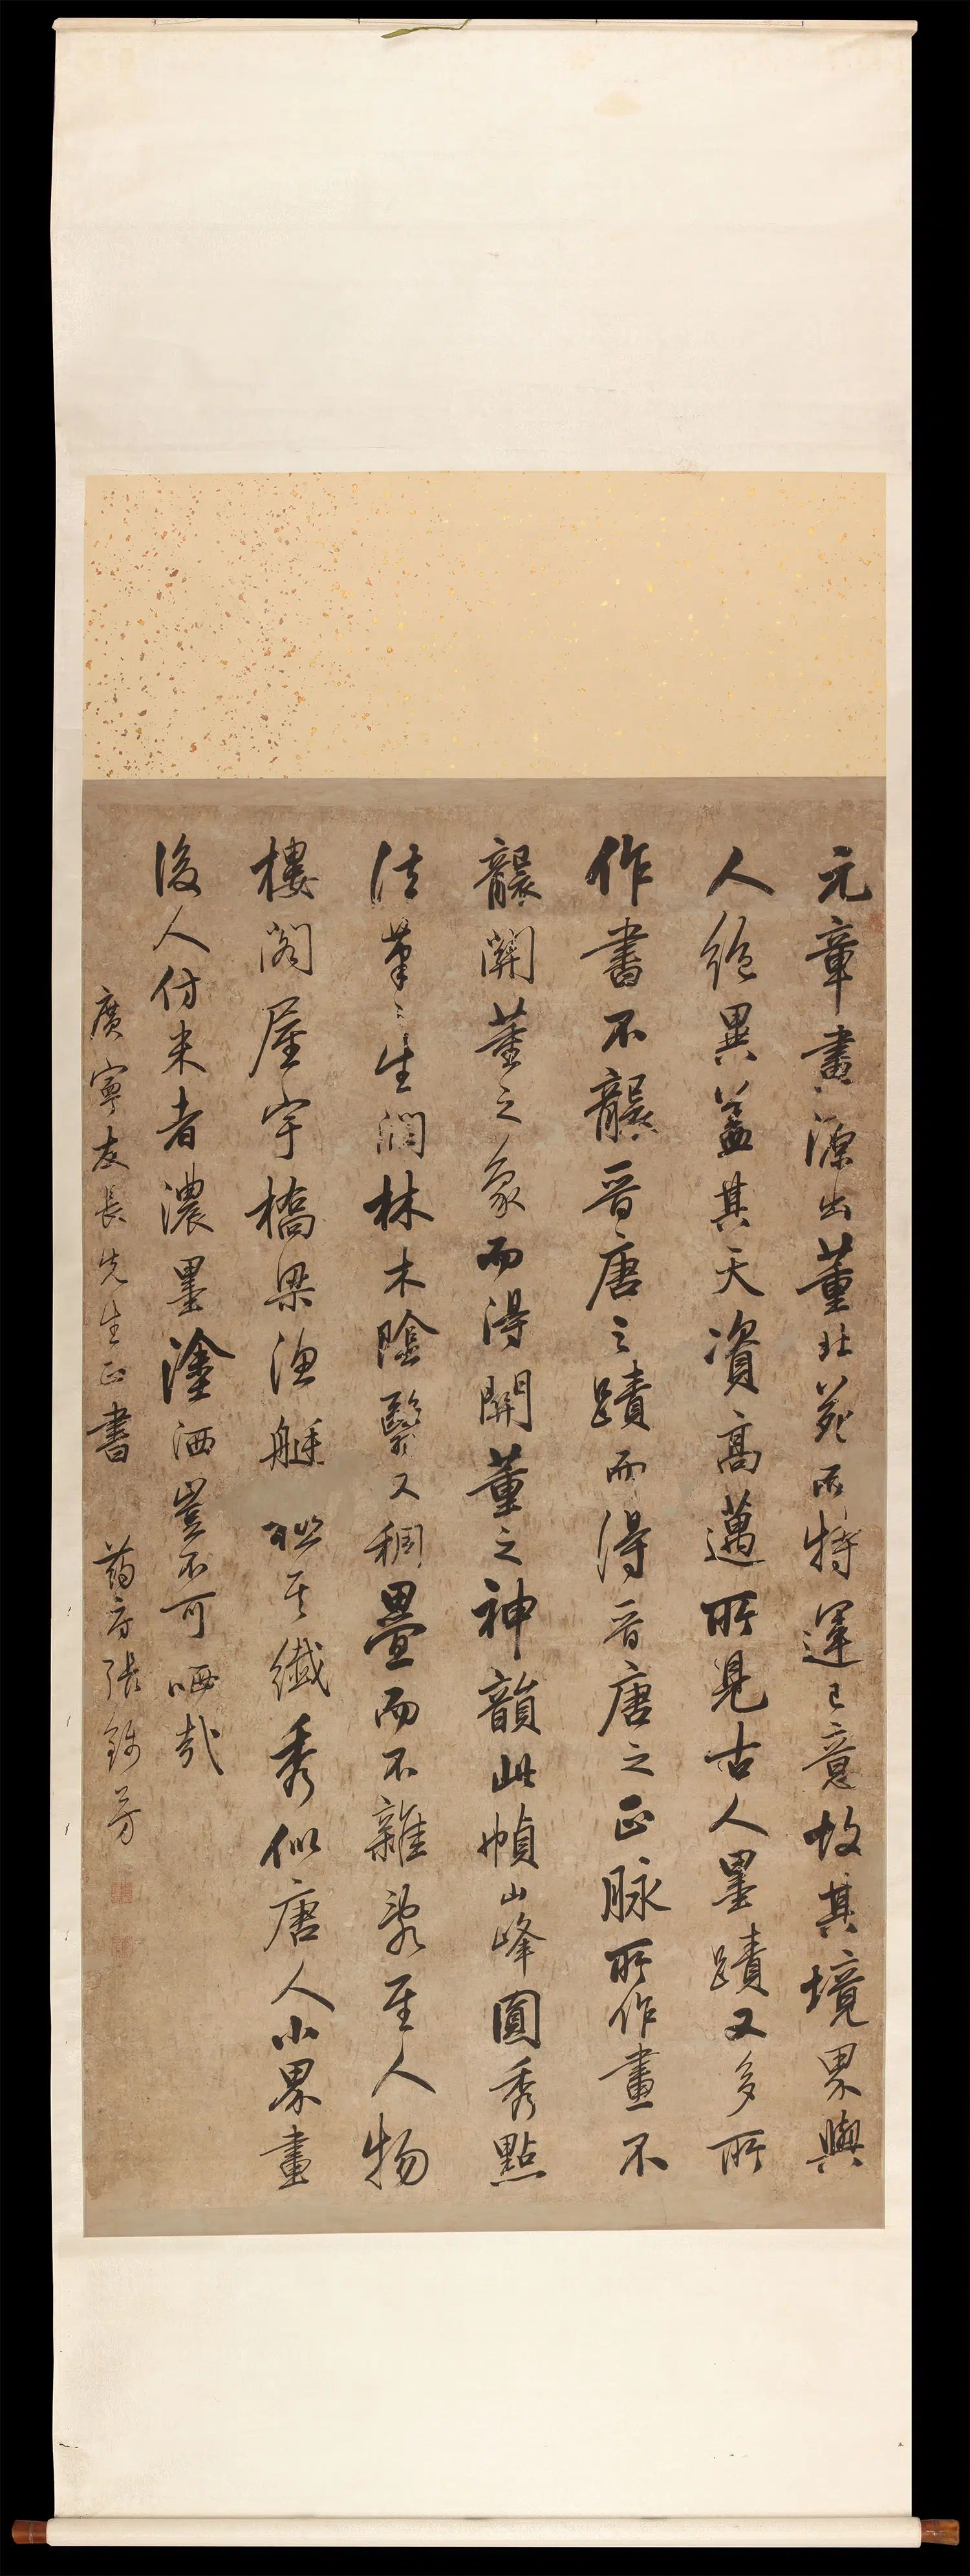 元章畫源出董北苑而特運已意故其境界與
人絶異蓋其天資高邁所見古人墨蹟又多所
作書不襲晋唐之蹟而得晋唐之正脉所作畫不
襲關董之象而得關董之神韻此幀山峰圓秀點
法筆〻生潤林木陰翳又稠疊而不雜亂至人物
樓閣屋宇橋梁漁艇一一其纖秀似唐人小界畫
後人仿米者濃墨塗洒豈不可哂哉
廣寧友長先生正書 葯房張錦芳